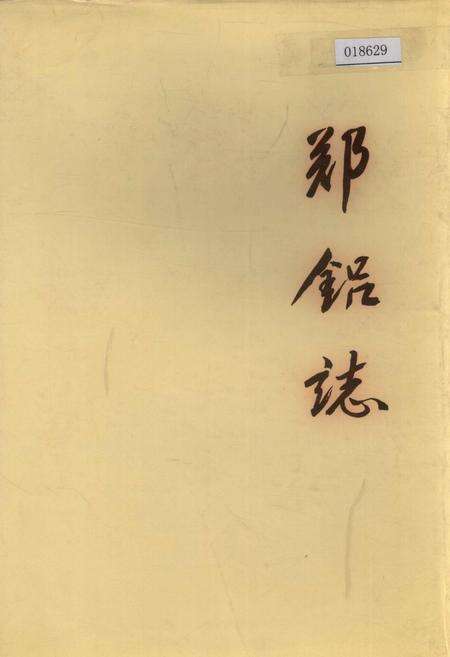 018629
郑
鋁
誌